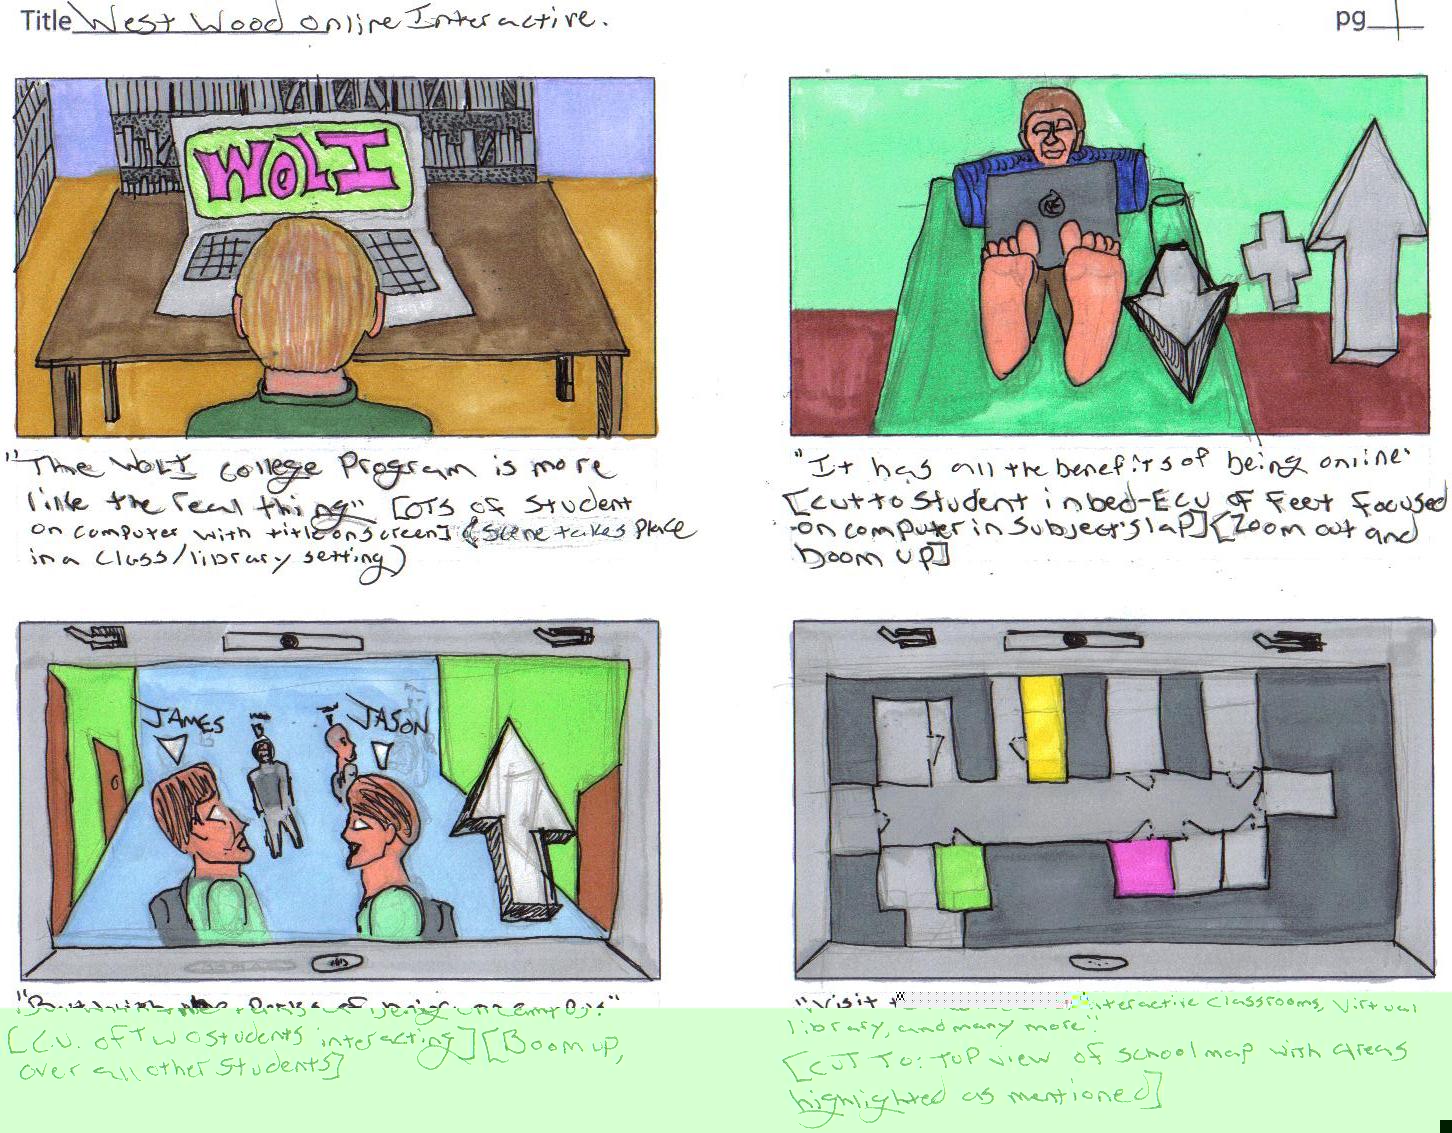 Title West Wood Online Interactive.
pg 1
WOLI
"The WOLI college Program is more
like the real thing" [OTS of Student
on computer with title on screen] (scene takes place
in a class/library setting)
"It has all the benefits of being online"
[cut to Student in bed-ECU of Feet Focused
on computer in subject's lap] [Zoom out and
boom up]
JAMES
JASON
"But with the Perks of being on campus"
[C.U. of Two students interacting] [Boom up,
over all other students]
"Visit
Interactive classrooms, Virtual
library, and many more".
[CUT TO: TOP view of school map with areas
highlighted as mentioned]